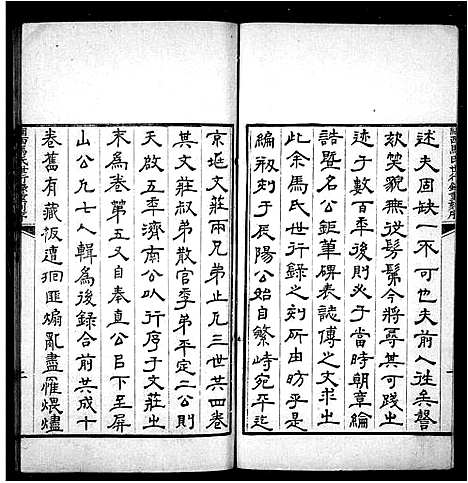 關西馬氏世行錄重刻序
述夫固缺一不可也夫前人往矣謦
欬笑貌無從髣髴今將尋其可踐之
迹于數百季後則必于當時朝章綸
誥暨名公鉅筆碑表誌傳之文求之
此余馬氏世行録之刻所由昉乎是
編刱于辰陽公始自繁峙宛平迄
京延文莊兩兄弟止凡三世共四卷
其文莊叔散官季弟平定二公則
天啟五季濟南公以行序于文莊之
末為卷第五又自奉直公曰下至屏
山公凡七人輯為後録合前共成十
卷舊有藏板遭洄匪煽亂盡罹煨燼